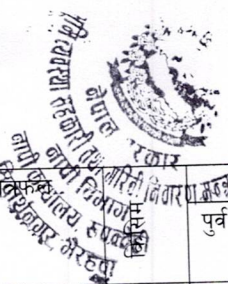 नेपाल सरकार
भूमि व्यवस्था सहकारी तथा गरिबी निवारण मन्त्रालय
नापी विभाग
नापी कार्यालय, रुपन्देही
सिद्धार्थनगर, भैरहवा
क्षेत्रफल
किसिम
पुर्व